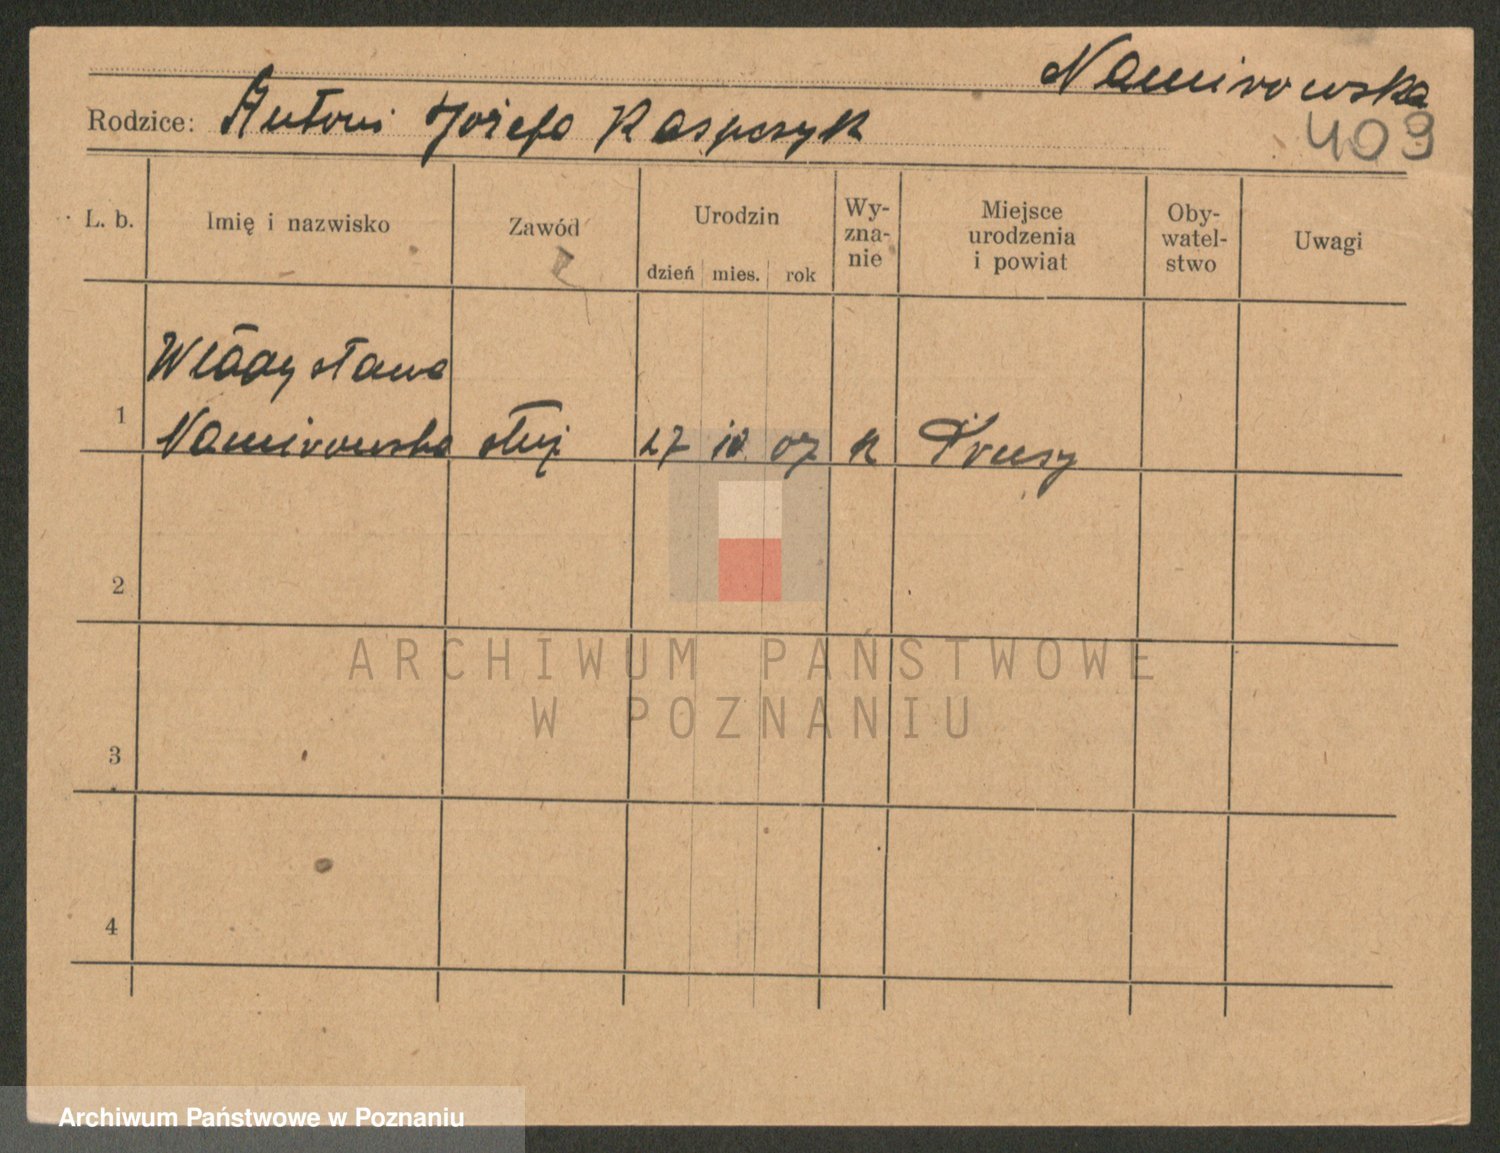 Namirowska
Rodzice: Antoni Józefa Kaspczyk
409
L. b. Imię i nazwisko Zawód Urodzin dzień mies. rok Wy-zna-nie Miejsce urodzenia i powiat Oby-watel-stwo Uwagi
Władysława
1 Namirowska służ 27 10 07 k Prusy
2
ARCHIWUM PAŃSTWOWE
W POZNANIU
3
4
Archiwum Państwowe w Poznaniu